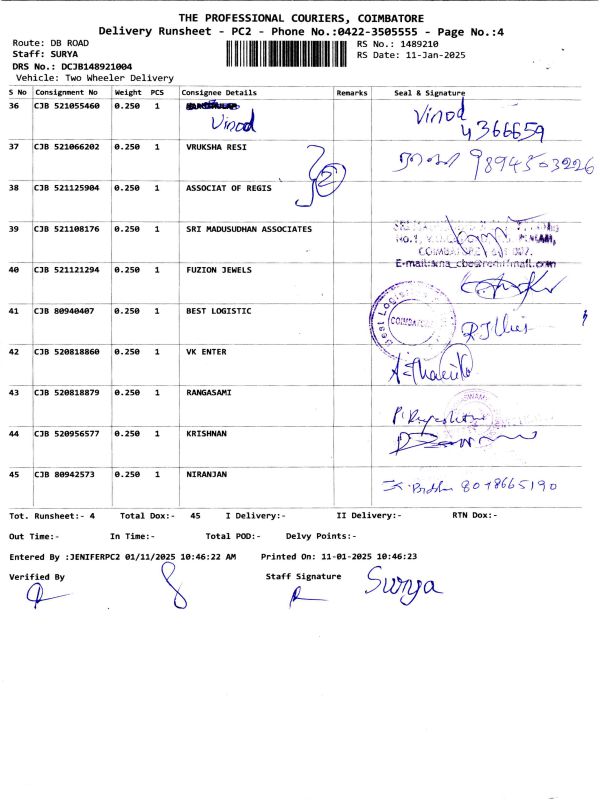 THE PROFESSIONAL COURIERS, COIMBATORE
Delivery Runsheet - PC2 - Phone No.:0422-3505555 - Page No.:4
Route: DB ROAD
RS No.: 1489210
Staff: SURYA
RS Date: 11-Jan-2025
DRS No.: DCJB148921004
Vehicle: Two Wheeler Delivery
S No Consignment No Weight PCS Consignee Details Remarks Seal & Signature
36 CJB 521055460 0.250 1 Vinod Vinod
4366659
37 CJB 521066202 0.250 1 VRUKSHA RESI 9894503226
38 CJB 521125904 0.250 1 ASSOCIAT OF REGIS
39 CJB 521108176 0.250 1 SRI MADUSUDHAN ASSOCIATES
No.1,
E-mail:
40 CJB 521121294 0.250 1 FUZION JEWELS
41 CJB 80940407 0.250 1 BEST LOGISTIC
Best Logis
COIMBATORE
42 CJB 520818860 0.250 1 VK ENTER
43 CJB 520818879 0.250 1 RANGASAMI
44 CJB 520956577 0.250 1 KRISHNAN
45 CJB 80942573 0.250 1 NIRANJAN 8018665190
Tot. Runsheet:- 4 Total Dox:- 45 I Delivery:- II Delivery:- RTN Dox:-
Out Time:- In Time:- Total POD:- Delvy Points:-
Entered By :JENIFERPC2 01/11/2025 10:46:22 AM Printed On: 11-01-2025 10:46:23
Verified By Staff Signature Surya